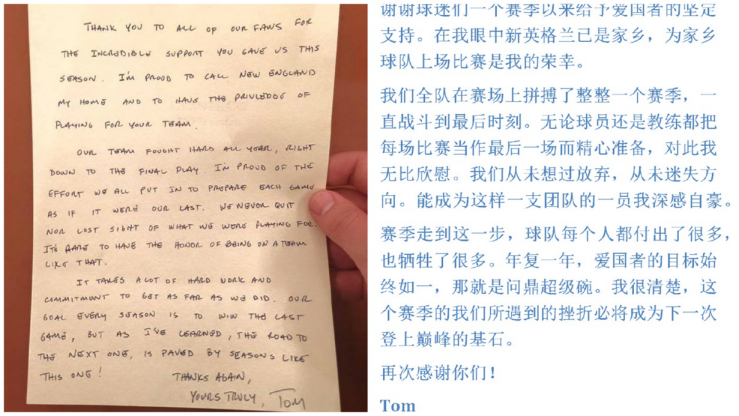 THANK YOU TO ALL OF OUR FANS FOR
THE INCREDIBLE SUPPORT YOU GAVE US THIS
SEASON. I'M PROUD TO CALL NEW ENGLAND
MY HOME AND TO HAVE THE PRIVLEDGE OF
PLAYING FOR YOUR TEAM.
OUR TEAM FOUGHT HARD ALL YEAR, RIGHT
DOWN TO THE FINAL PLAY. I'M PROUD OF THE
EFFORT WE ALL PUT IN TO PREPARE EACH GAME
AS IF IT WERE OUR LAST. WE NEVER QUIT
NOR LOST SIGHT OF WHAT WE WERE PLAYING FOR.
IT'S RARE TO HAVE THE HONOR OF BEING ON A TEAM
LIKE THAT.
IT TAKES A LOT OF HARD WORK AND
COMMITMENT TO GET AS FAR AS WE DID. OUR
GOAL EVERY SEASON IS TO WIN THE LAST
GAME, BUT AS I'VE LEARNED, THE ROAD TO
THE NEXT ONE, IS PAVED BY SEASONS LIKE
THIS ONE!
THANKS AGAIN,
YOURS TRULY, TOM
谢谢球迷们一个赛季以来给予爱国者的坚定
支持。在我眼中新英格兰已是家乡，为家乡
球队上场比赛是我的荣幸。
我们全队在赛场上拼搏了整整一个赛季，一
直战斗到最后时刻。无论球员还是教练都把
每场比赛当作最后一场而精心准备，对此我
无比欣慰。我们从未想过放弃，从未迷失方
向。能成为这样一支团队的一员我深感自豪。
赛季走到这一步，球队每个人都付出了很多，
也牺牲了很多。年复一年，爱国者的目标始
终如一，那就是问鼎超级碗。我很清楚，这
个赛季的我们所遇到的挫折必将成为下一次
登上巅峰的基石。
再次感谢你们！
Tom